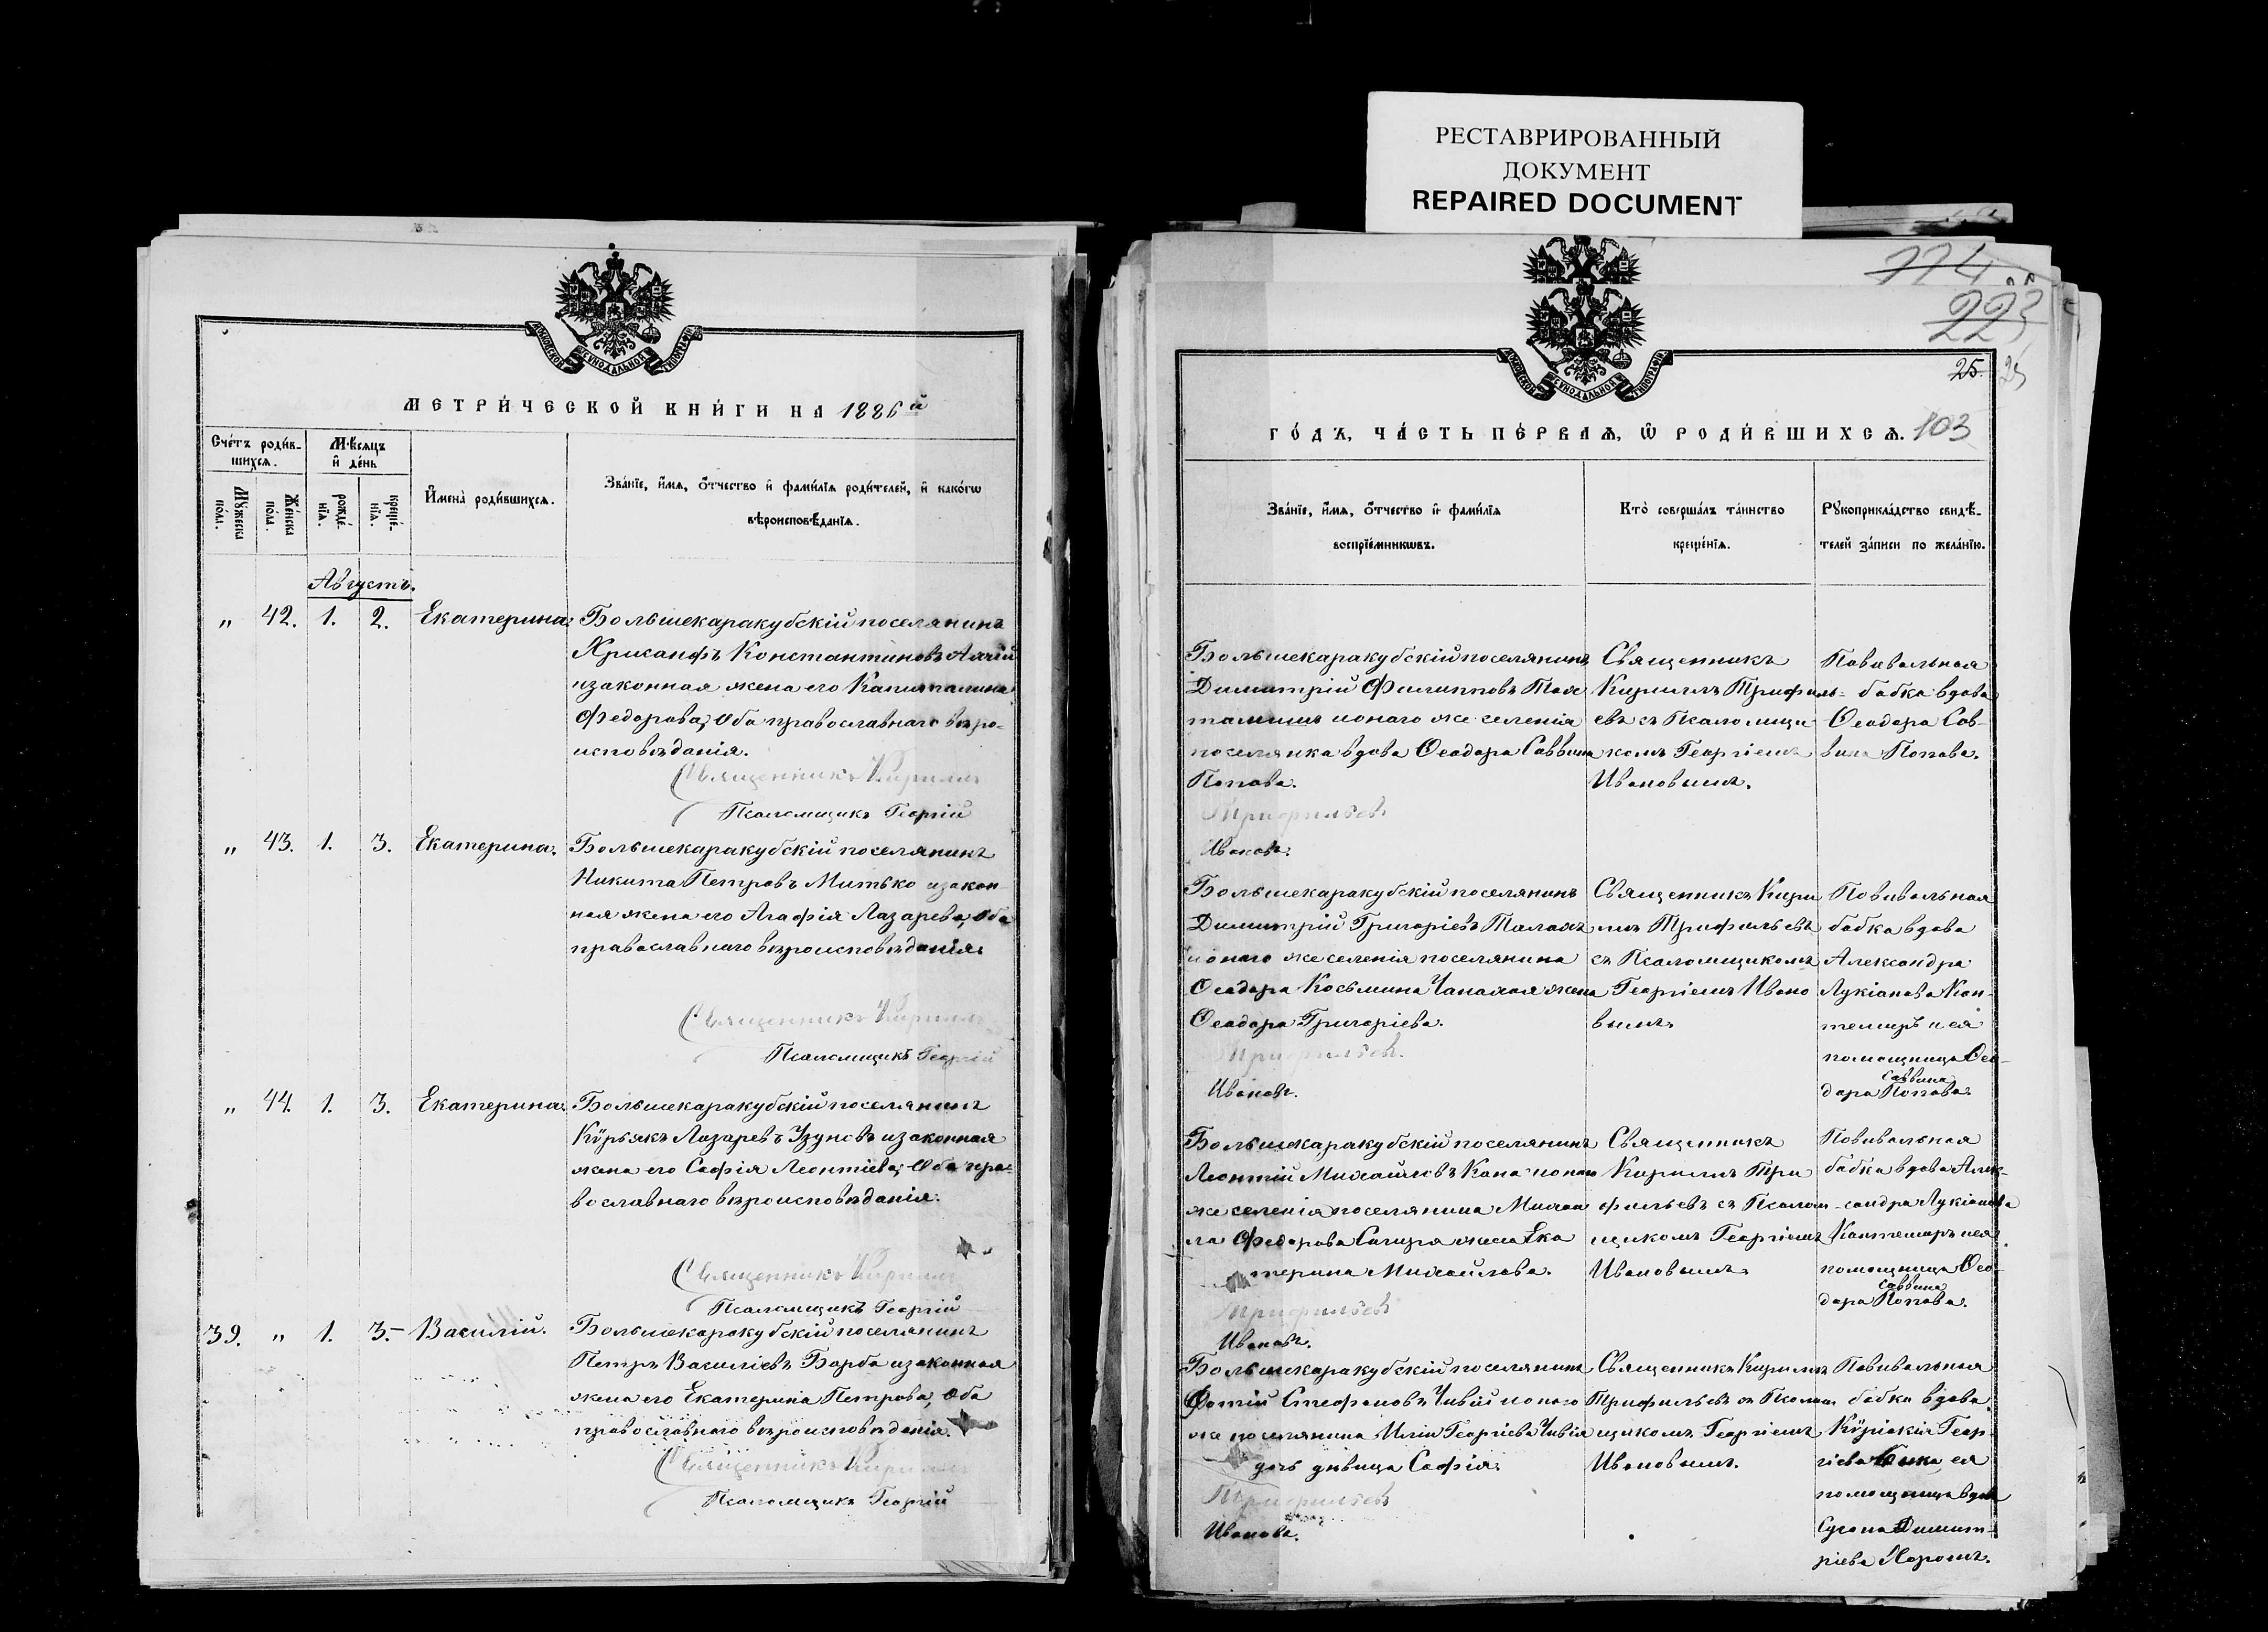 РЕСТАВРИРОВАННЫЙ
ДОКУМЕНТ
REPAIRED DOCUMENT
МЕТРИ́ЧЕСКОЙ КНИ́ГИ НА 1886й
Сче́тъ роди́в-
шихся.
Мѣсяцъ
и҆ де́нь
Мꙋ́жеска
по́ла.
Же́нска
пола.
рожде́-
нїѧ.
креще́-
нїѧ.
И҆мена̀ роди́вшихсѧ.
Зва́нїе, и҆́мѧ, ѻ҆́тчество и҆ фами́лїѧ роди́телей, и҆ како́гѡ
вѣроисповѣ́данїѧ.
Августъ.
„ 42. 1. 2. Екатерина.
Большекаракубскій поселянинъ
Хрисанфъ Константиновъ
и законная жена его Капиталина
Федорова, оба православнаго вѣро-
исповѣданія.
Священникъ Кириллъ
Псаломщикъ Георгій
„ 43. 1. 3. Екатерина.
Большекаракубскій поселянинъ
Никита Петровъ Митько и закон
ная жена его Агафія Лазарева, оба
православнаго вѣроисповѣданія.
Священникъ Кириллъ
Псаломщикъ Георгій
„ 44. 1. 3. Екатерина.
Большекаракубскій поселянинъ
Кѵрьякъ Лазаревъ Узуновъ и законная
жена его Софія Леонтіева, оба пра-
вославнаго вѣроисповѣданія.
Священникъ Кириллъ
Псаломщикъ Георгій
39. „ 1. 3. Василій.
Большекаракубскій поселянинъ
Петръ Василіевъ Барба и законная
жена его Екатерина Петрова, оба
православнаго вѣроисповѣданія.
Священникъ Кириллъ
Псаломщикъ Георгій
114
223
25.
25
ГО́ДЪ, ЧА́СТЬ ПЕ́РВАѦ, Ѡ҆ РОДИ́ВШИХСѦ. 103
Зва́нїе, и҆́мѧ, ѻ҆́тчество и҆ фами́лїѧ
воспрїе́мникѡвъ.
Кто̀ соверша́лъ та́инство
креще́нїѧ.
Рꙋкоприкла́дство свидѣ́-
телей за́писи по жела́нїю.
Большекаракубскій поселянинъ
Димитрій Филипповъ
и онаго же селенія
поселянка вдова Ѳеодора Саввина
Попова.
Трифильевъ
Ивановъ.
Священникъ
Кириллъ Трифиль-
евъ съ Псаломщи
комъ Георгіемъ
Ивановымъ.
Повивальная
бабка вдова
Ѳеодора Сав-
вина Попова.
Большекаракубскій поселянинъ
Димитрій Григоріевъ Талахъ
и онаго же селенія поселянина
Ѳеодора Косьмина жена
Ѳеодора Григоріева.
Трифильевъ.
Ивановъ.
Священникъ Кири
ллъ Трифильевъ
съ Псаломщикомъ
Георгіемъ Ивано
вымъ
Повивальная
бабка вдова
Александра
Лукіанова Кан-
темиръ и ея
помощница Ѳео-
Саввина
дора Попова.
Большекаракубскій поселянинъ
Леонтій Михайловъ Кана и онаго
же селенія поселянина Михаи
ла Федорова жена Ека
терина Михайлова.
Трифильевъ
Ивановъ.
Священникъ
Кириллъ Три
фильевъ съ Псалом-
щикомъ Георгіемъ
Ивановымъ.
Повивальная
бабка вдова Алек-
сандра Лукіанова
Кантемиръ и ея
помощница Ѳео-
Саввина
дора Попова.
Большекаракубскій поселянинъ
Фотій Стефановъ Чивій и онаго
же поселянина Иліи Георгіева Чивія
дочь дѣвица Софія.
Трифильевъ
Ивановъ.
Священникъ Кириллъ
Трифильевъ съ Псалом
щикомъ Георгіемъ
Ивановымъ.
Повивальная
бабка вдова
Кѵріакія Геор-
гіева ея
помощница вдова
Димит-
ріева